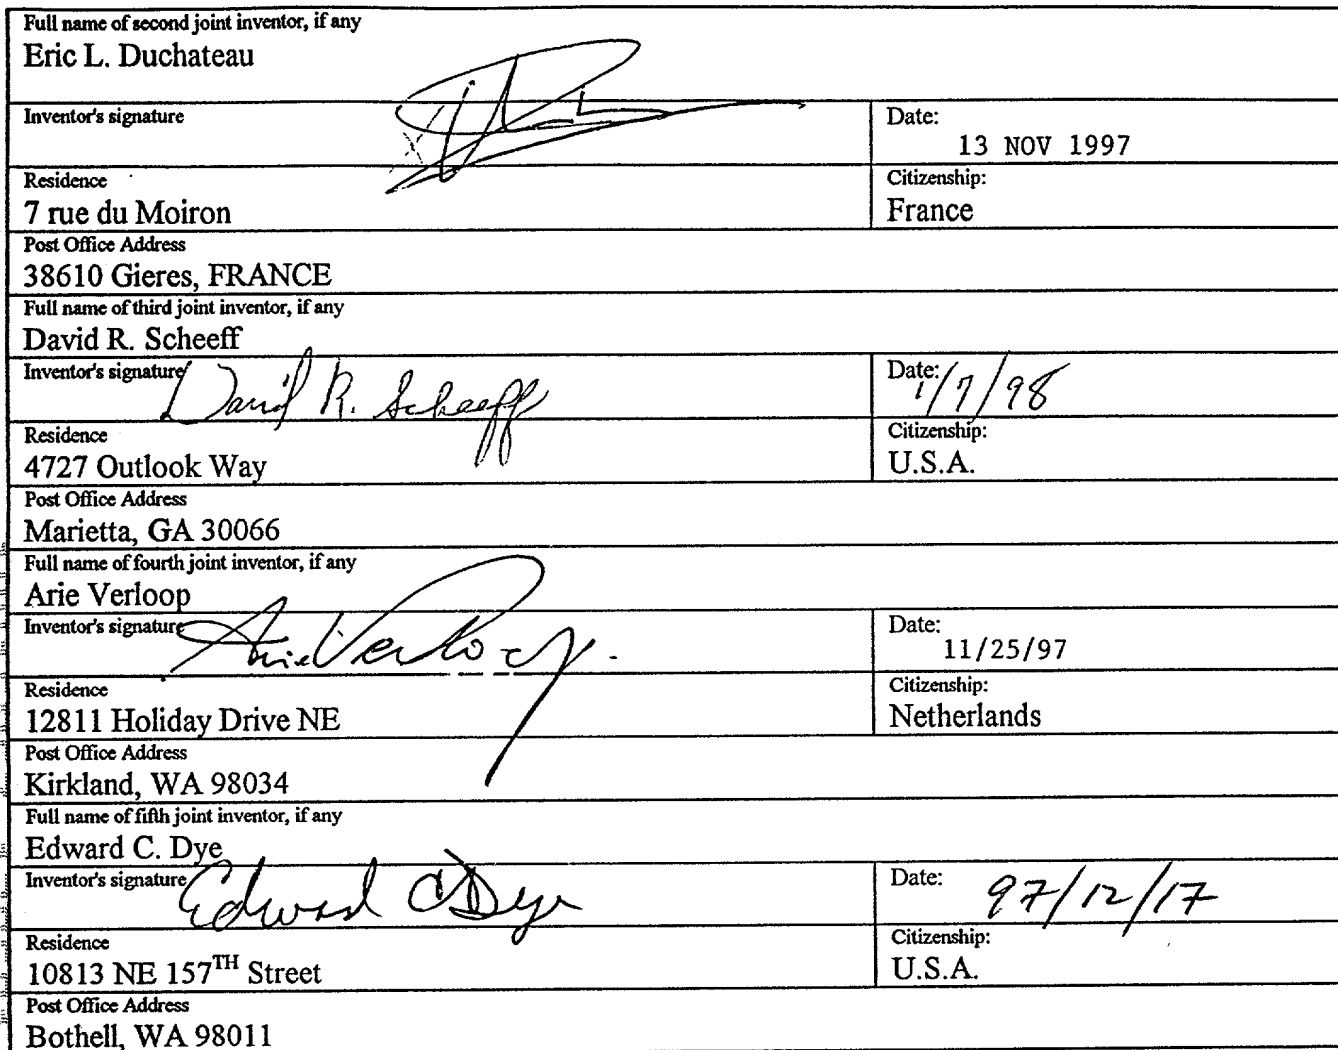 Full name of second joint inventor, if any
Eric L. Duchateau
Inventor's signature
Date:
13 NOV 1997
Residence
Citizenship:
7 rue du Moiron
France
Post Office Address
38610 Gieres, FRANCE
Full name of third joint inventor, if any
David R. Scheeff
Inventor's signature David R. Scheeff
Date: 1/7/98
Residence
Citizenship:
4727 Outlook Way
U.S.A.
Post Office Address
Marietta, GA 30066
Full name of fourth joint inventor, if any
Arie Verloop
Inventor's signature Arie Verloop
Date:
11/25/97
Residence
Citizenship:
12811 Holiday Drive NE
Netherlands
Post Office Address
Kirkland, WA 98034
Full name of fifth joint inventor, if any
Edward C. Dye
Inventor's signature Edward C Dye
Date: 97/12/17
Residence
Citizenship:
10813 NE 157TH Street
U.S.A.
Post Office Address
Bothell, WA 98011